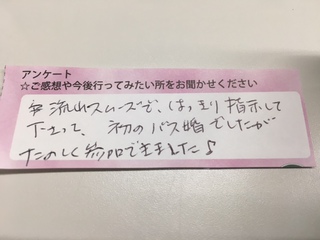 アンケート
☆ご感想や今後行ってみたい所をお聞かせください
流れもスムーズで、はっきり指示して
下さって、初のバス婚でしたが
たのしく参加できました♪